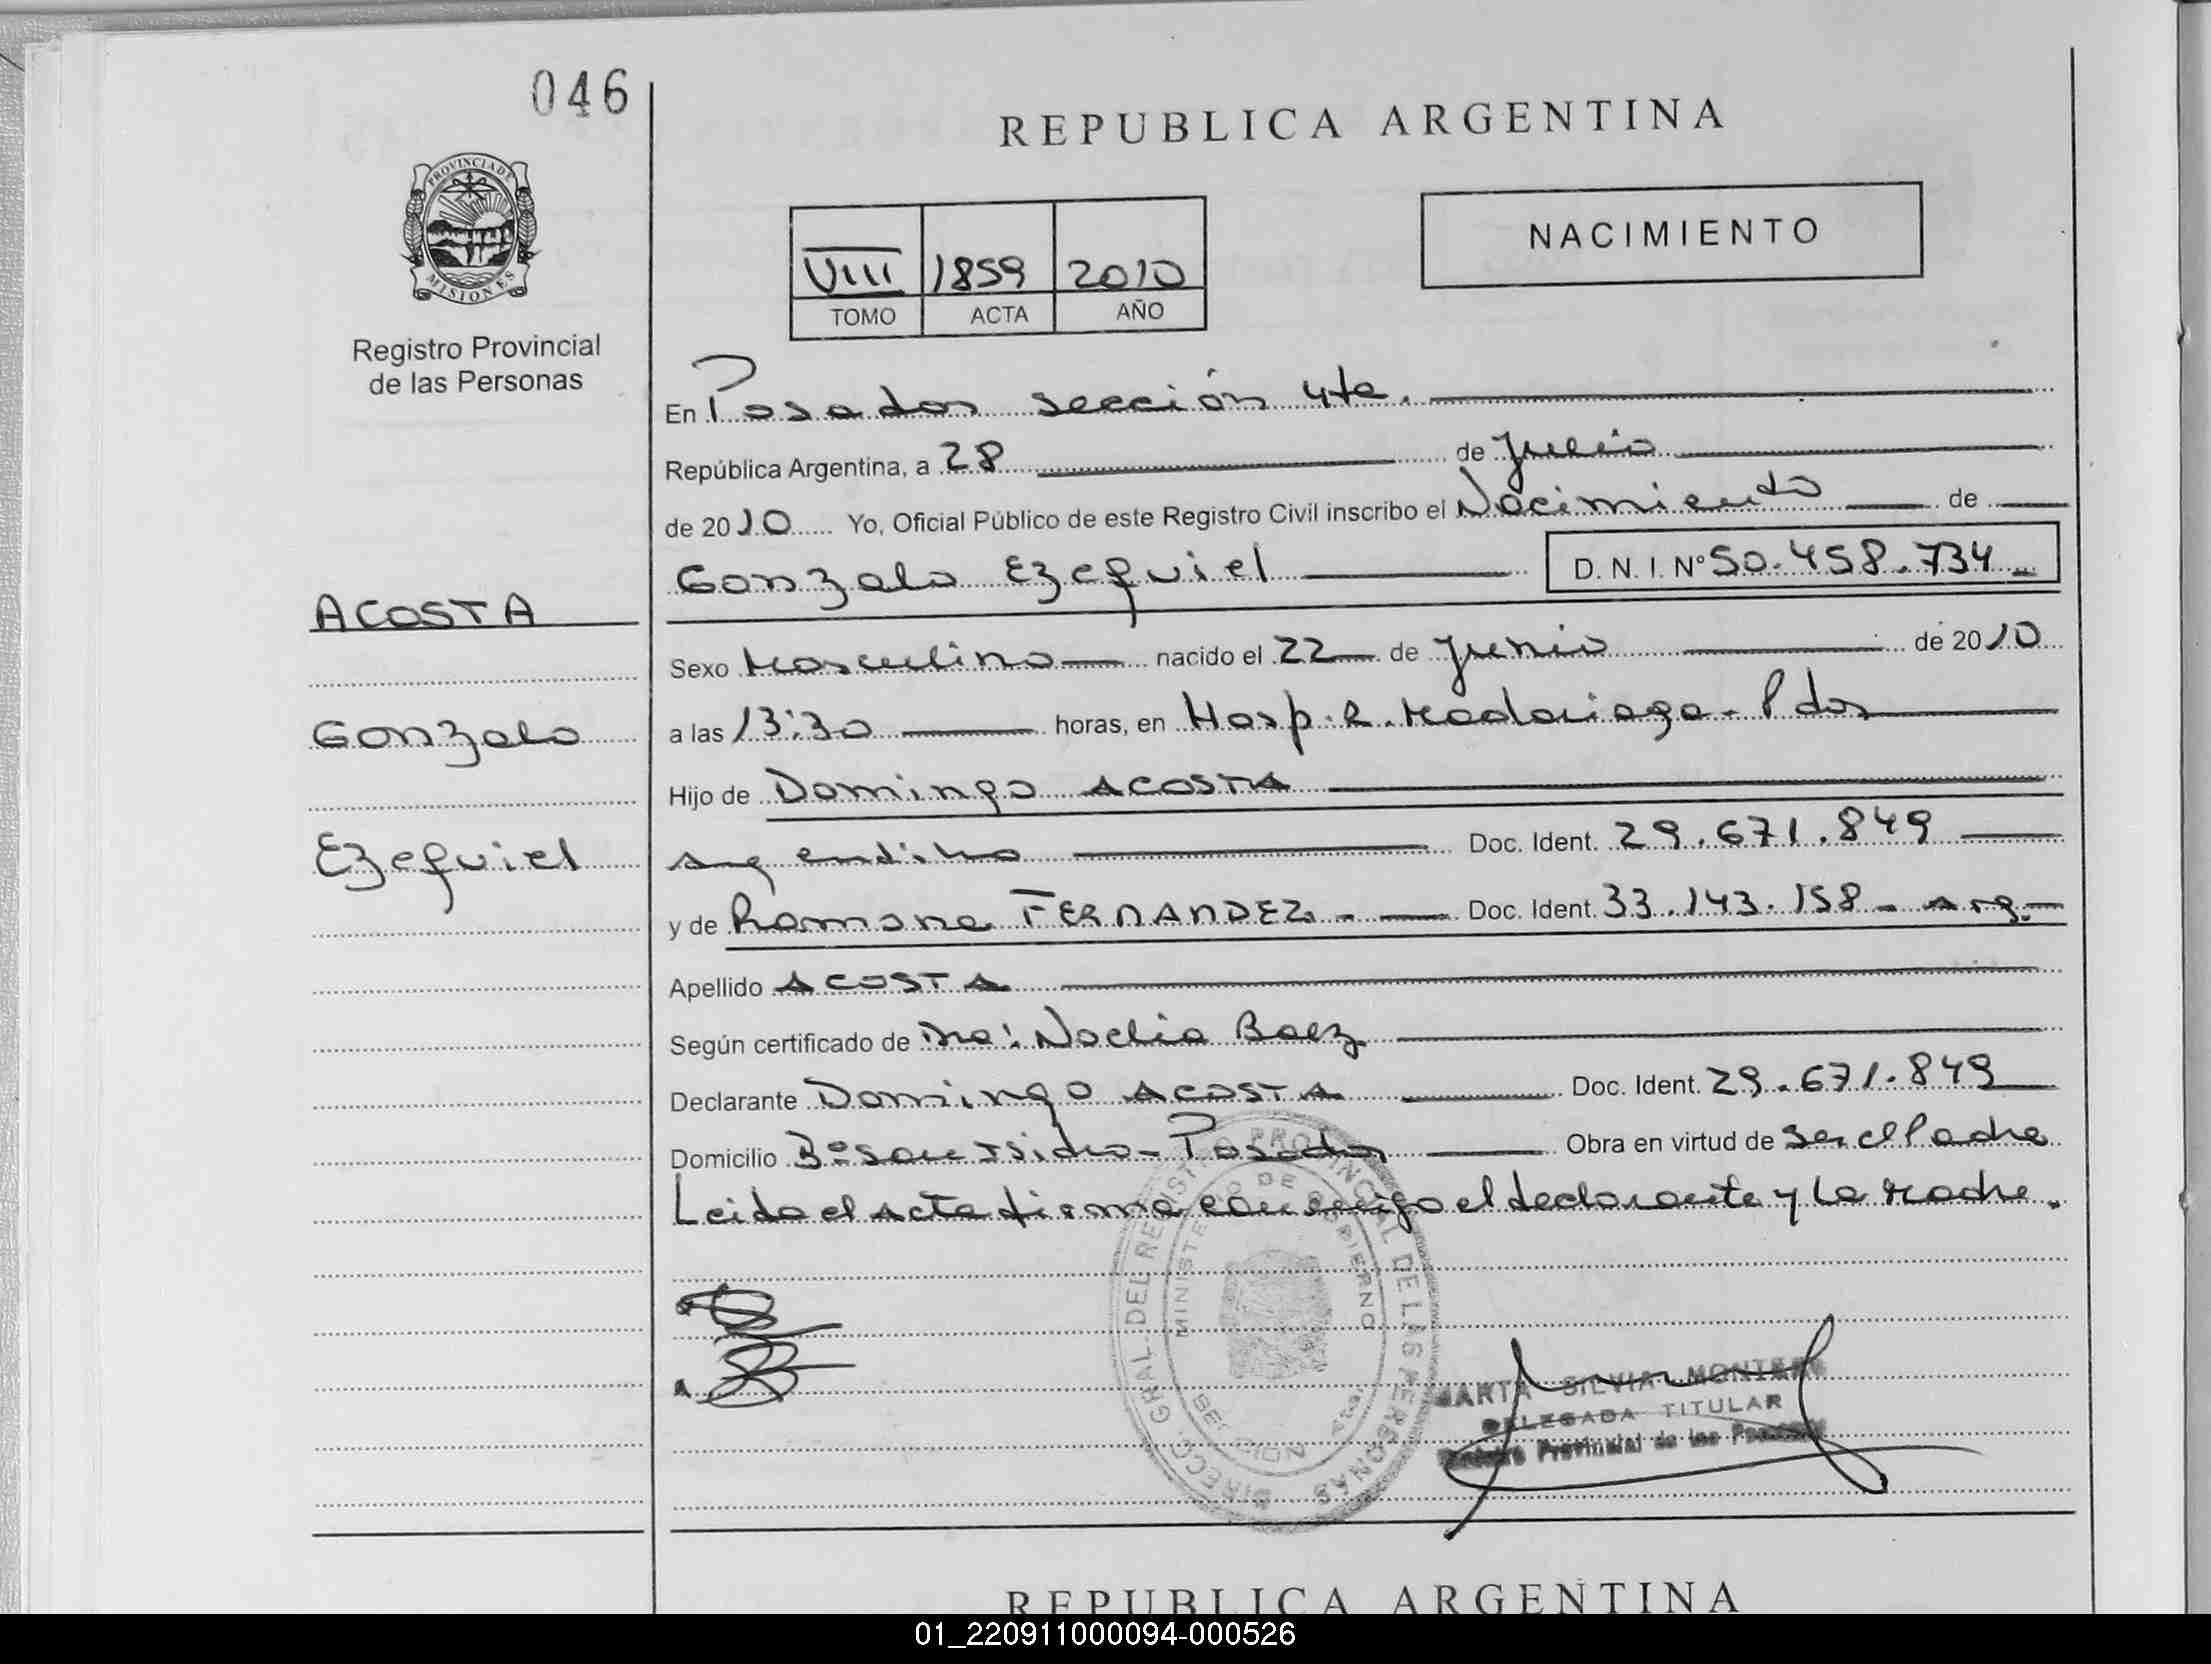 046
PROVINCIA DE
MISIONES
Registro Provincial
de las Personas
ACOSTA
Gonzalo
Ezequiel
REPUBLICA ARGENTINA
NACIMIENTO
VIII 1859 2010
TOMO ACTA AÑO
En Posadas sección 4ta.
República Argentina, a 28 de Julio
de 2010 Yo, Oficial Público de este Registro Civil inscribo el Nacimiento de
Gonzalo Ezequiel D. N. I. Nº 50.458.734
Sexo Masculino nacido el 22 de Junio de 2010
a las 13:30 horas, en Hosp. R. Madariaga - Pdas
Hijo de Domingo ACOSTA
argentino Doc. Ident. 29.671.849
y de Ramona FERNANDEZ - Doc. Ident. 33.143.158 - arg.
Apellido ACOSTA
Según certificado de Noelia Baez
Declarante Domingo ACOSTA Doc. Ident. 29.671.849
Domicilio Bº San Isidro - Posadas Obra en virtud de ser el Padre
Leida el acta firma conmigo el declarante y la Madre.
DIRECC. GRAL. DEL REGISTRO PROVINCIAL DE LAS PERSONAS
MINISTERIO DE GOBIERNO
MARTA SILVIA
DELEGADA TITULAR
Provincial de las
REPUBLICA ARGENTINA
01_220911000094-000526